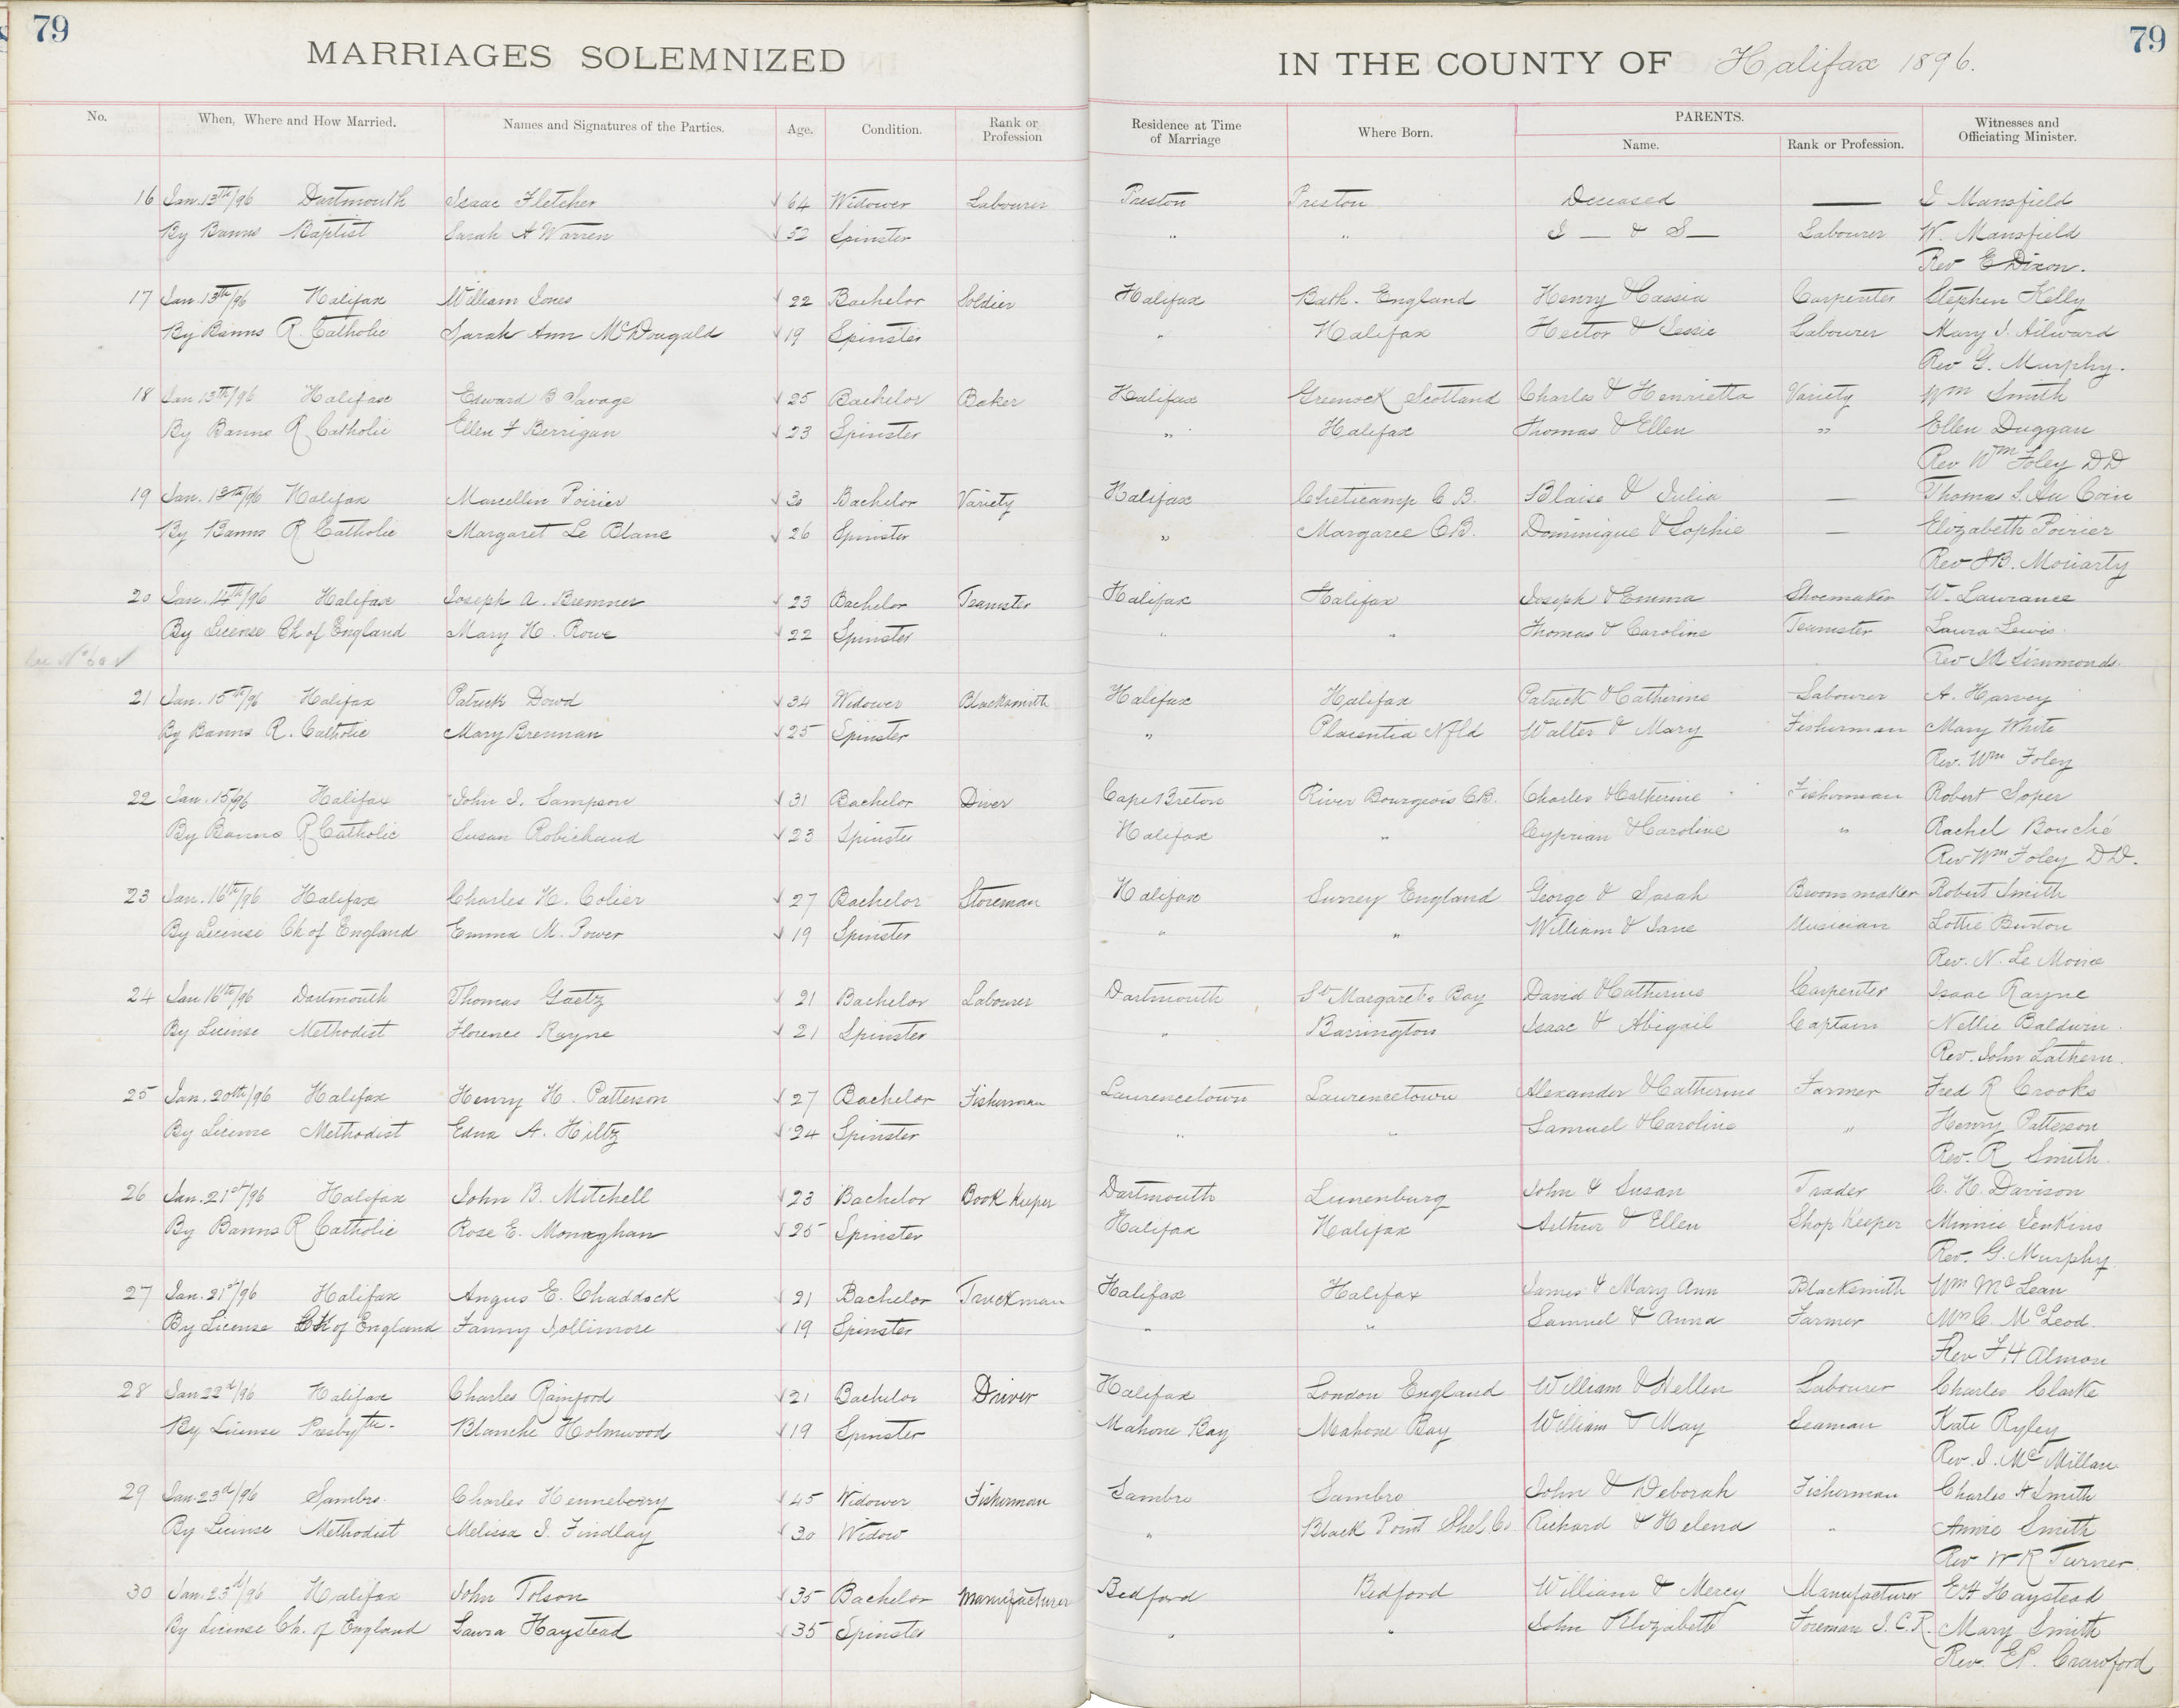 79 79
MARRIAGES SOLEMNIZED IN THE COUNTY OF Halifax 1896.
No. When, Where and How Married. Names and Signatures of the Parties. Age. Condition. Rank or Profession Residence at Time of Marriage Where Born. PARENTS. Name. Rank or Profession. Witnesses and Officiating Minister.
16 Jan. 13th/96 Dartmouth Isaac Fletcher √ 64 Widower Labourer Preston Preston Deceased — I Mansfield
By Banns Baptist Sarah A Warren √ 52 Spinster " " I — & S — Labourer W. Mansfield
Rev E Dixon.
17 Jan. 13th/96 Halifax William Jones √ 22 Bachelor Soldier Halifax Bath. England Henry & Cassia Carpenter Stephen Kelly
By Banns R. Catholic Sarah Ann McDougald √ 19 Spinster " Halifax Hector & Jessie Labourer Mary J. Ailward
Rev G. Murphy.
18 Jan 13th/96 Halifax Edward B Savage √ 25 Bachelor Baker Halifax Greenock Scotland Charles & Henrietta Variety Wm Smith
By Banns R Catholic Ellen F Berrigan √ 23 Spinster " Halifax Thomas & Ellen " Ellen Duggan
Rev Wm Foley DD
19 Jan. 13th/96 Halifax Marcellin Poirier √ 30 Bachelor Variety Halifax Cheticamp C B. Blaise & Julia — Thomas S. Au Coin
By Banns R Catholic Margaret Le Blanc √ 26 Spinster " Margaree CB. Dominique & Sophie — Elizabeth Poirier
Rev J B. Moriarty
20 Jan. 14th/96 Halifax Joseph A. Bremner √ 23 Bachelor Teamster Halifax Halifax Joseph & Emma Shoemaker W. Lawrance
By License Ch of England Mary H. Rowe √ 22 Spinster " " Thomas & Caroline Teamster Laura Lewis
Rev Simmonds
21 Jan. 15th/96 Halifax Patrick Dowd √ 34 Widower Blacksmith Halifax Halifax Patrick & Catherine Labourer A. Harvey
By Banns R. Catholic Mary Brennan √ 25 Spinster " Placentia Nfld Walter & Mary Fisherman Mary White
Rev. Wm Foley
22 Jan. 15/96 Halifax John J. Sampson √ 31 Bachelor Diver Cape Breton River Bourgeois CB. Charles & Catherine Fisherman Robert Soper
By Banns R Catholic Susan Robichaud √ 23 Spinster Halifax " Cyprian & Caroline " Rachel Bouché
Rev Wm Foley DD.
23 Jan. 16th/96 Halifax Charles H. Colier √ 27 Bachelor Storeman Halifax Surrey England George & Sarah Broommaker Robert Smith
By License Ch of England Emma M. Power √ 19 Spinster " " William & Jane Musician Lottie Burton
Rev. N. Le Moine
24 Jan 16th/96 Dartmouth Thomas Gaetz √ 21 Bachelor Labourer Dartmouth St Margarets Bay David & Catherine Carpenter Isaac Rayne
By License Methodist Florence Rayne √ 21 Spinster " Barrington Isaac & Abigail Captain Nellie Baldwin
Rev. John Lathern.
25 Jan. 20th/96 Halifax Henry H. Patterson √ 27 Bachelor Fisherman Laurencetown Laurencetown Alexander & Catherine Farmer Fred R Crooks
By License Methodist Edna A. Hiltz √ 24 Spinster " " Samuel & Caroline " Henry Patterson
Rev. R Smith.
26 Jan. 21st/96 Halifax John B. Mitchell √ 23 Bachelor Book Keeper Dartmouth Lunenburg John & Susan Trader C. H. Davison
By Banns R Catholic Rose E. Monaghan √ 25 Spinster Halifax Halifax Arthur & Ellen Shop Keeper Minnie Jenkins
Rev. G. Murphy
27 Jan. 21st/96 Halifax Angus E. Chaddock √ 21 Bachelor Truckman Halifax Halifax James & Mary Ann Blacksmith Wm McLean
By License Ch of England Fanny Jollimore √ 19 Spinster " " Samuel & Anna Farmer C. McLeod.
Rev F H Almon
28 Jan 22d/96 Halifax Charles Rainford √ 21 Bachelor Driver Halifax London England William & Hellen Labourer Charles Clarke
By License Presbyt- Blanche Holmwood √ 19 Spinster Mahone Bay Mahone Bay William & May Seaman Kate Ryley
Rev. J. McMillan
29 Jan 23d/96 Sambro. Charles Henneberry √ 45 Widower Fisherman Sambro Sambro John & Deborah Fisherman Charles H Smith
By License Methodist Melissa J. Findlay √ 30 Widow " Black Point Shel Co. Richard & Helena " Annie Smith
Rev W R Turner.
30 Jan. 23d/96 Halifax John Tolson √ 35 Bachelor Manufacturer Bedford Bedford William & Mercy Manufacturer E H Haystead
By License Ch. of England Laura Haystead √ 35 Spinster " " John & Elizabeth Foreman I. C. R. Mary Smith
Rev. E P. Crawford